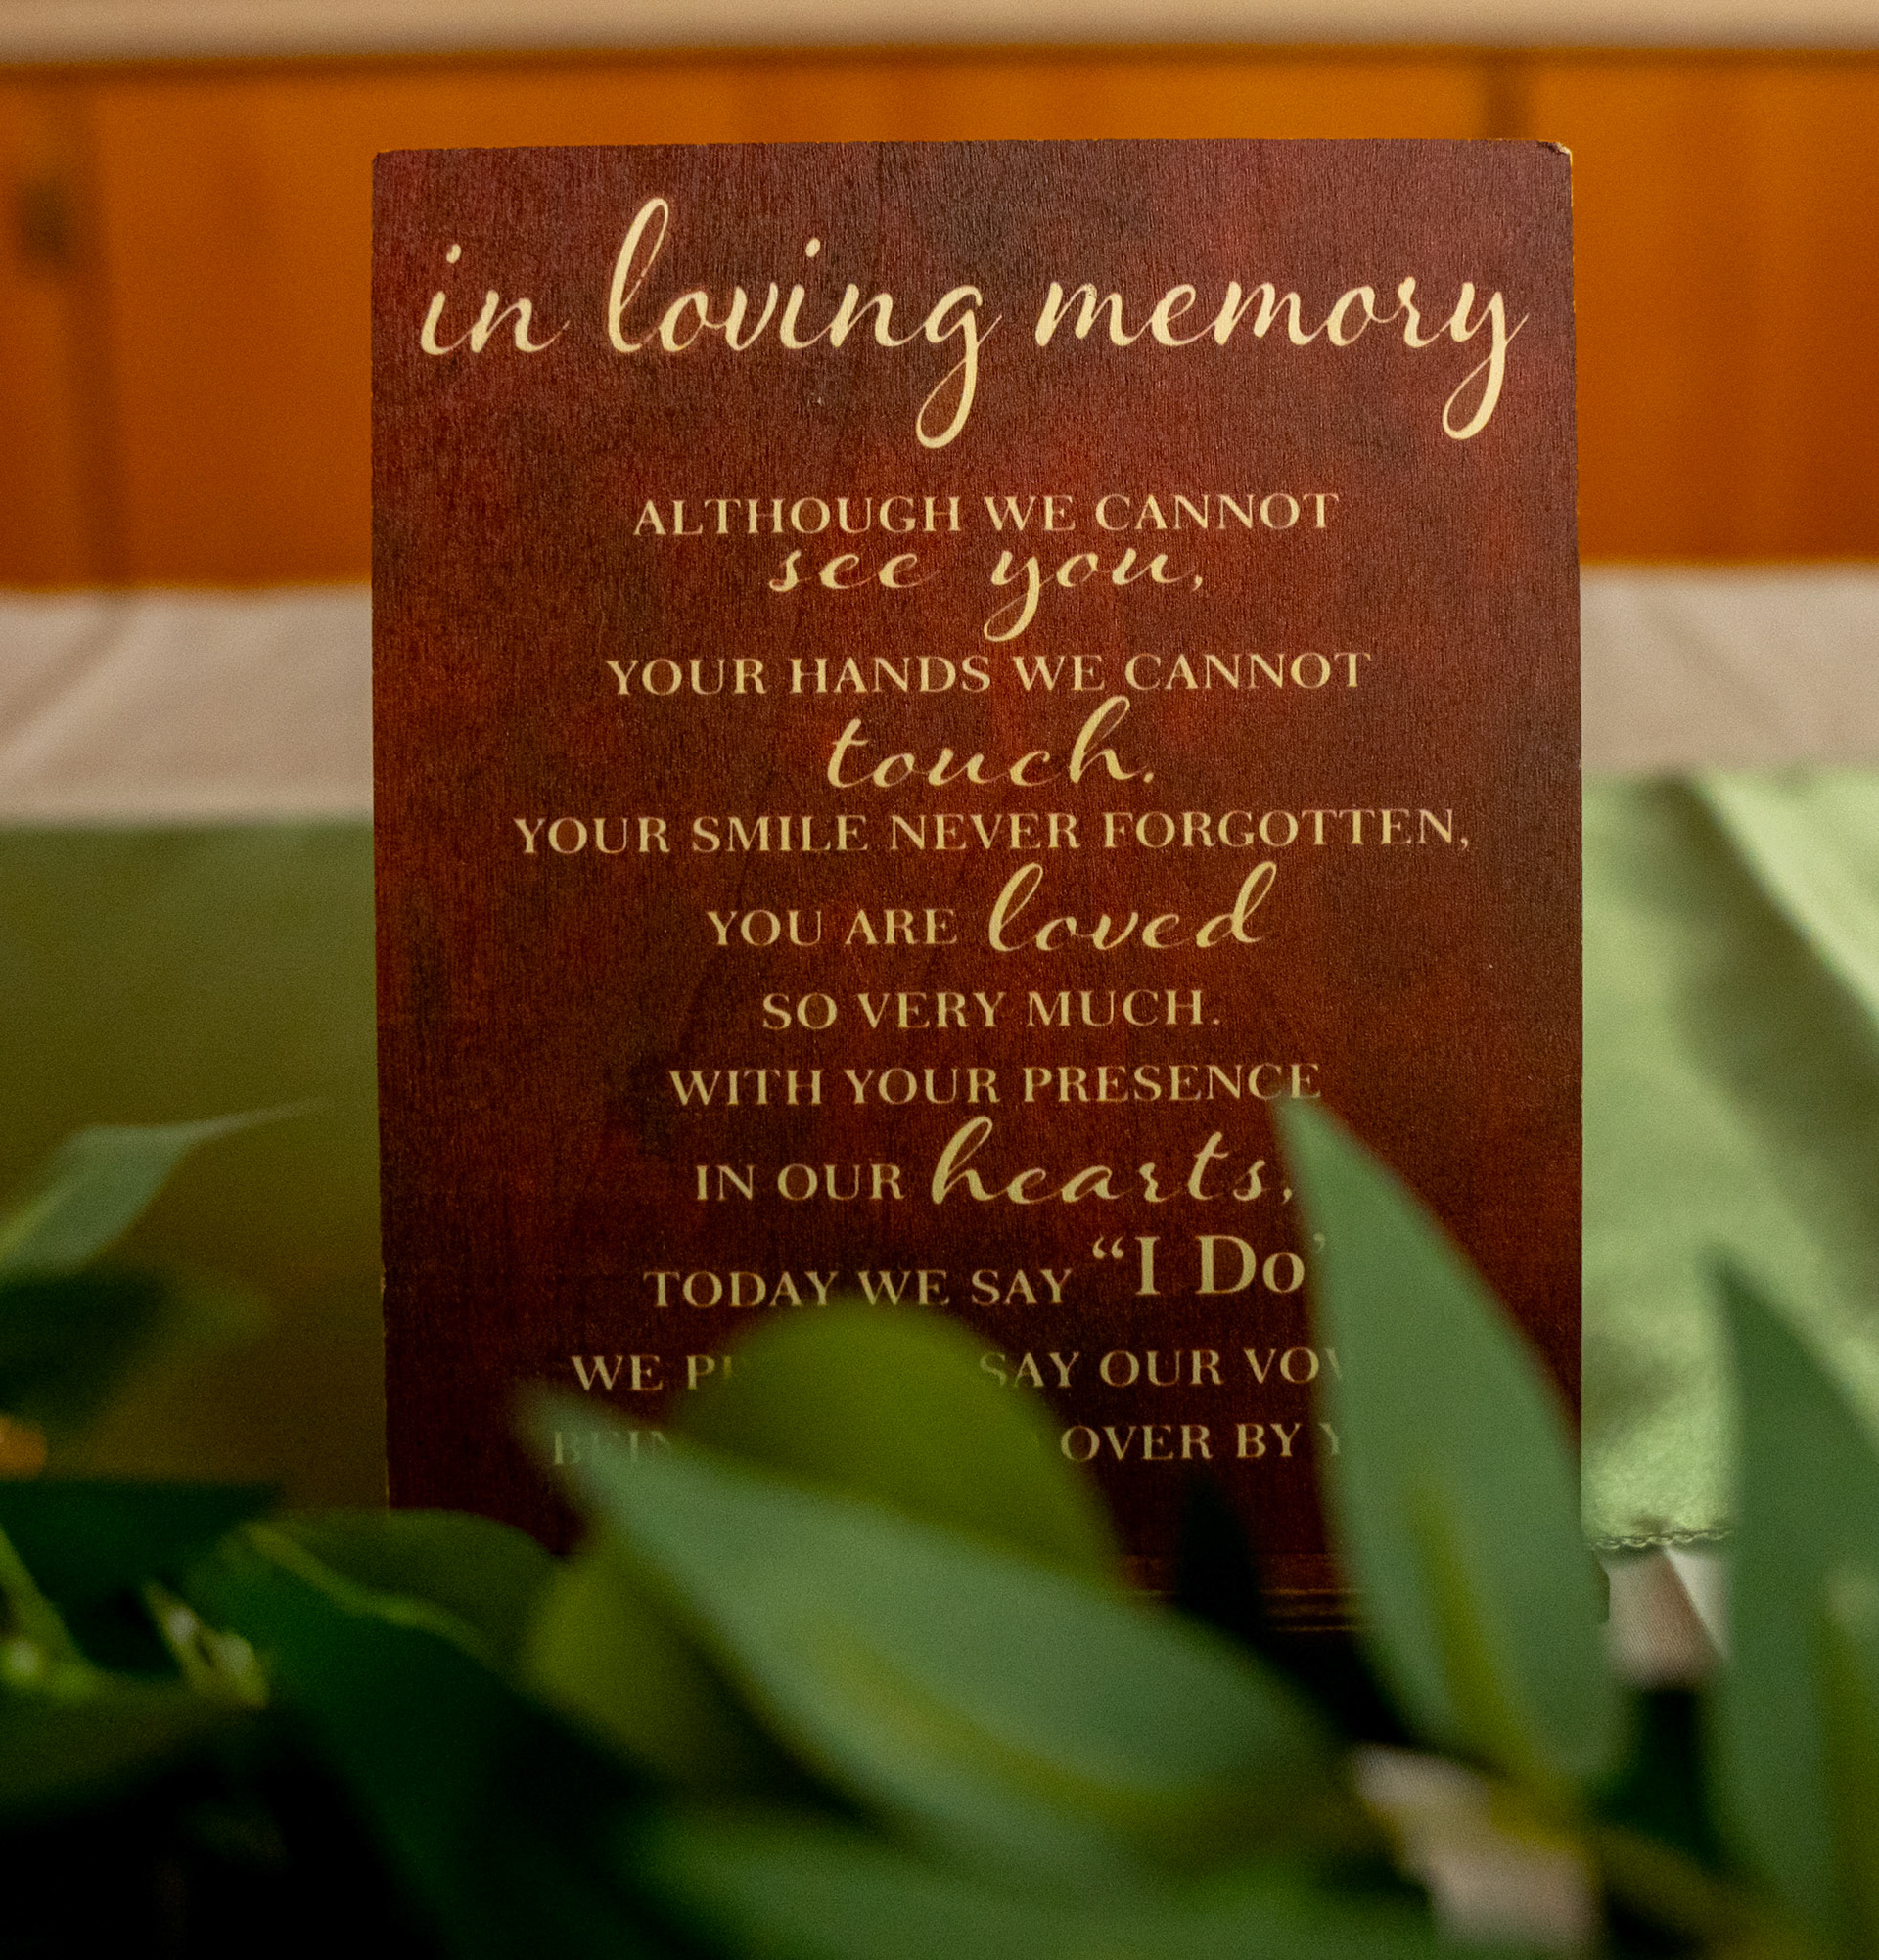 in loving memory
ALTHOUGH WE CANNOT
see you,
YOUR HANDS WE CANNOT
touch.
YOUR SMILE NEVER FORGOTTEN,
YOU ARE loved
SO VERY MUCH.
WITH YOUR PRESENCE
IN OUR hearts,
TODAY WE SAY “I Do”
WE SAY OUR
OVER BY